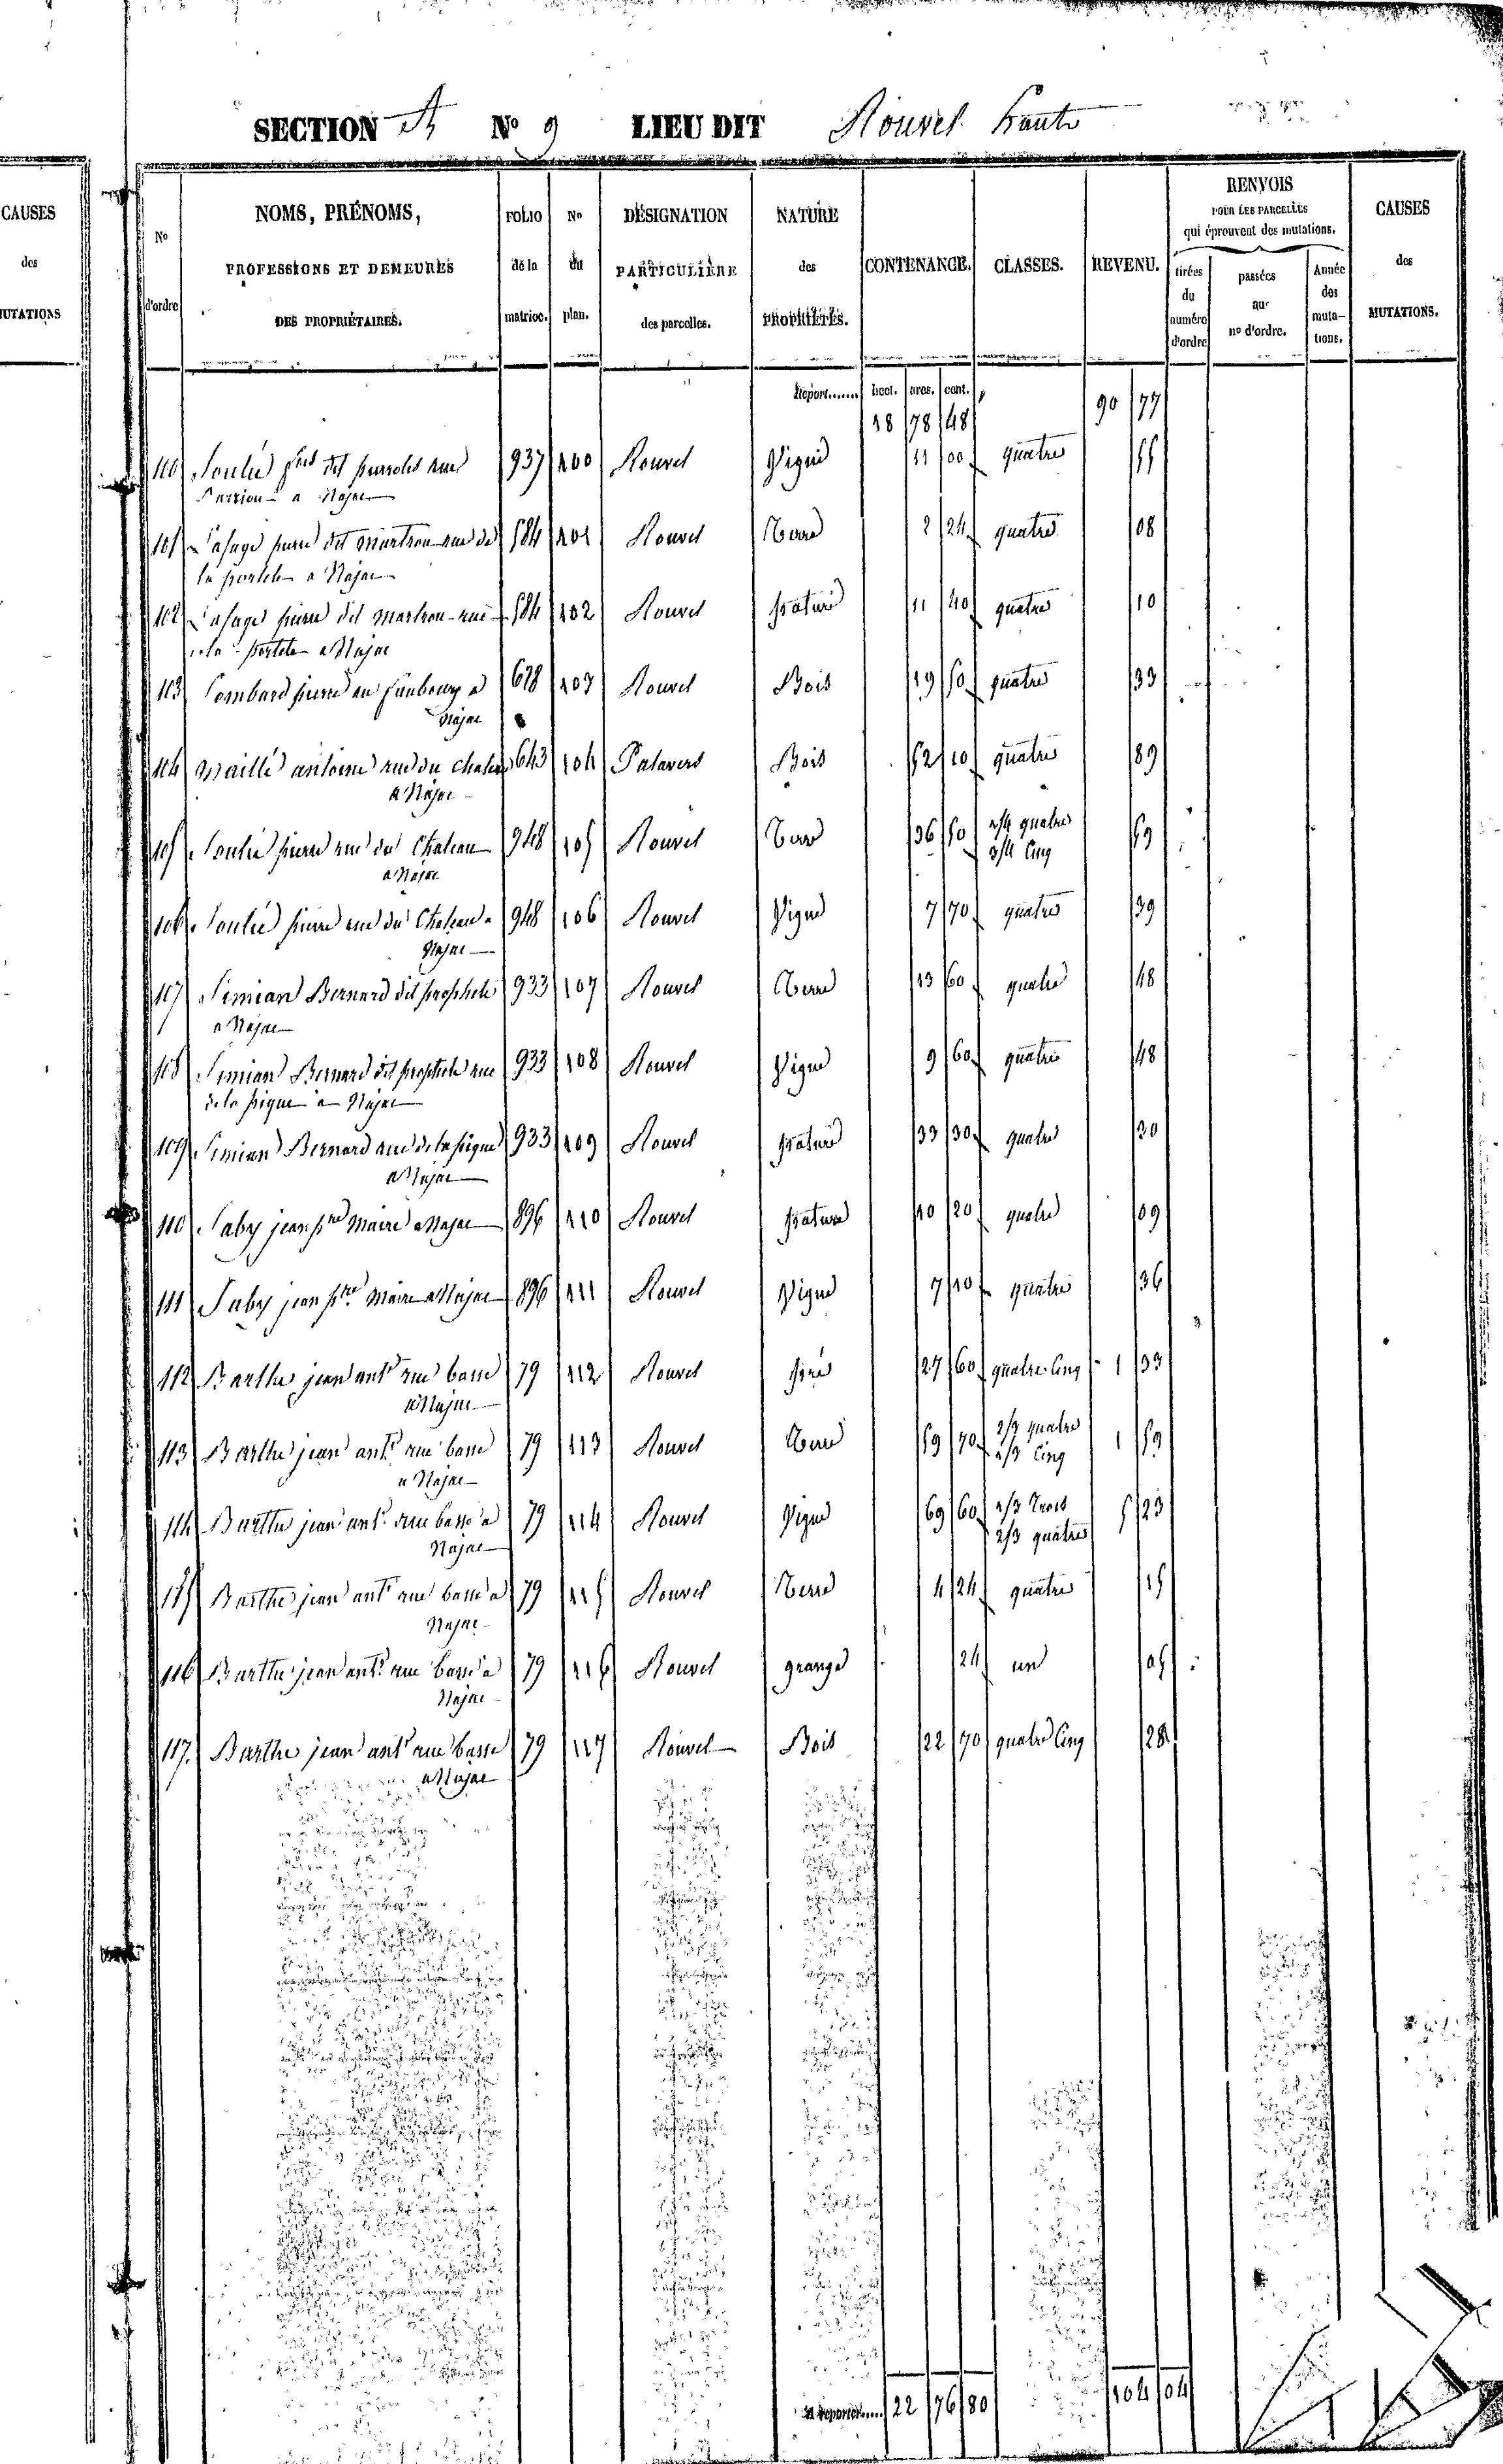 SECTION A N° 9 LIEU DIT Rouvel haute
CAUSES
des
MUTATIONS
N°
d'ordre
NOMS, PRÉNOMS,
PROFESSIONS ET DEMEURES
DES PROPRIÉTAIRES.
FOLIO
de la
matrice.
N°
du
plan.
DÉSIGNATION
PARTICULIÈRE
des parcelles.
NATURE
des
PROPRIÉTÉS.
CONTENANCE.
CLASSES.
REVENU.
RENVOIS
POUR LES PARCELLES
qui éprouvent des mutations.
tirées
du
numéro
d'ordre
passées
au
n° d'ordre.
Année
des
muta-
tions.
CAUSES
des
MUTATIONS.
Report....... hect. ares. cent.
18 78 48 90 77
100 Soulié 937 100 Rouvel Vigne 11 00 quatre 55
a Najac
101 Lafage pierre dit martron rue de 584 101 Rouvel Terre 2 24 quatre 08
la portela a Najac
102 Lafage pierre dit martron rue 584 102 Rouvel pature 11 40 quatre 10
de la portela a Najac
103 Lombard pierre au faubourg a 628 103 Rouvel Bois 19 50 quatre 33
Najac
104 Maillé antoine rue du chateau 643 104 Palavers Bois 52 10 quatre 89
a Najac
105 Soulié pierre rue du Chateau 948 105 Rouvel Terre 36 50 1/4 quatre 59
3/4 Cinq
a Najac
106 Soulié pierre rue du Chateau a 948 106 Rouvel Vigne 7 70 quatre 39
Najac
107 Simian Bernard dit prophete 933 107 Rouvel Terre 13 60 quatre 48
a Najac
108 Simian Bernard dit prophete rue 933 108 Rouvel Vigne 9 60 quatre 48
de la pique a Najac
109 Simian Bernard rue de la pique 933 109 Rouvel pature 33 30 quatre 30
a Najac
110 Saby jean pre Maire a Najac 896 110 Rouvel pature 10 20 quatre 09
111 Saby jean pre Maire a Najac 896 111 Rouvel Vigne 7 10 quatre 36
112 Barthe jean ant rue basse 79 112 Rouvel pré 27 60 quatre Cinq 1 33
a Najac
113 Barthe jean ant rue basse 79 113 Rouvel Terre 59 70 2/3 quatre 1 59
1/3 Cinq
a Najac
114 Barthe jean ant rue basse a 79 114 Rouvel Vigne 69 60 1/3 Trois 5 23
2/3 quatre
Najac
115 Barthe jean ant rue basse a 79 115 Rouvel Terre 4 24 quatre 15
Najac
116 Barthe jean ant rue basse a 79 116 Rouvel grange 24 un 05
Najac
117. Barthe jean ant rue basse 79 117 Rouvel Bois 22 70 quatre Cinq 28
a Najac
A reporter..... 22 76 80 104 04